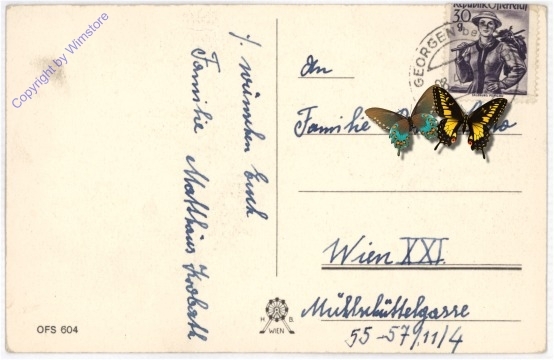 Copyright by Winstore
./. wünschen Euch
Familie Matthäus Kroboth
OFS 604
An
Familie
Wien XXI.
Mühlschüttelgasse
55-57/11/4
H B
WIEN
GEORGEN be
Republik Österreich
30
g